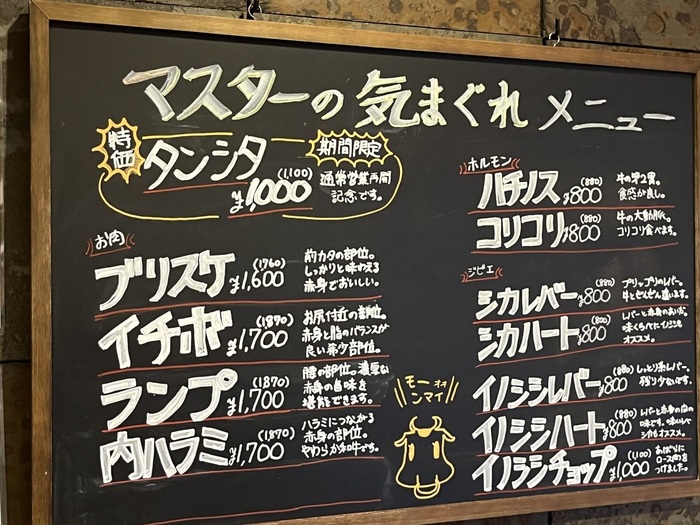 マスターの気まぐれメニュー
特価
タンシタ
期間限定
(1,100)
¥1,000
通常営業再開
記念です。
お肉
ブリスケ
(1760)
¥1,600
前カタの部位。
しっかりと味わえる
赤身でおいしい。
イチボ
(1870)
¥1,700
お尻付近の部位。
赤身と脂のバランスが
良い希少部位。
ランプ
(1870)
¥1,700
腰の部位。濃厚な
赤身の旨味を
堪能できます。
内ハラミ
(1870)
¥1,700
ハラミにつながる
赤身の部位。
やわらか和牛です。
モー
ンマイ
ホルモン
ハチノス
(880)
¥800
牛の第2胃。
食感が良し。
コリコリ
(880)
¥800
牛の大動脈。
コリコリ食べます。
ジビエ
シカレバー
(880)
¥800
プリップリのレバー。
牛とぜんぜん違います。
シカハート
(880)
¥800
レバーと赤身のあいだ。
オススメ。
イノシシレバー
(880)
¥800
しっとり系レバー。
残り少ないです。
イノシシハート
(880)
¥800
レバーと赤身の間の
味です。
シカもオススメ。
イノシシチョップ
(1,100)
¥1,000
あばらに
ロース肉を
つけました。